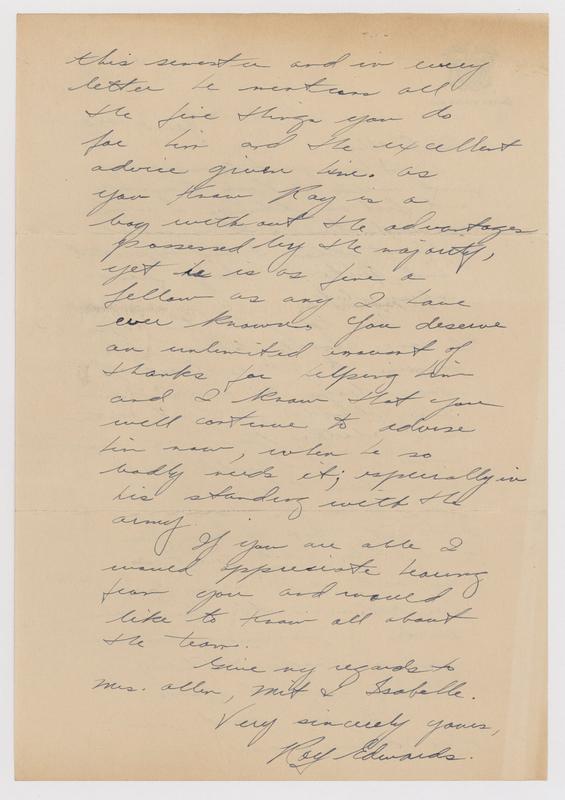 this semester and in every
letter he mentions all
the fine things you do
for him and the excellent
advice given him. As
you know Ray is a
boy without the advantages
possessed by the majority,
yet he is as fine a
fellow as any I have
ever known. You deserve
an unlimited amount of
thanks for helping him
and I know that you
will continue to advise
him now, when he so
badly needs it; especially in
his standing with the
army.
If you are able I
would appreciate hearing
from you and would
like to know all about
the team.
Give my regards to
Mrs. Allen, Mit & Isabelle.
Very sincerely yours,
Roy Edwards.